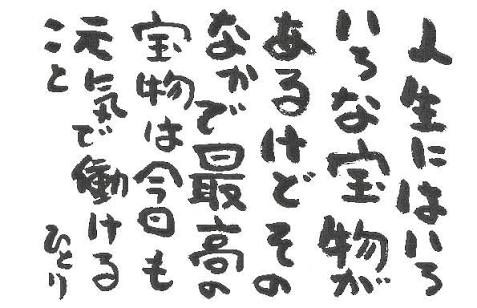 人生にはいろ
いろな宝物が
あるけどその
なかで最高の
宝物は今日も
元気で働ける
こと
ひとり